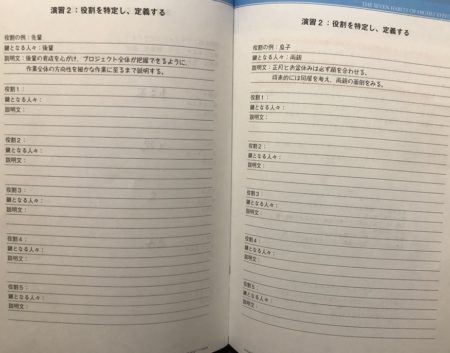 演習2：役割を特定し、定義する
役割の例：先輩
鍵となる人々：後輩
説明文：後輩の育成を心がけ、プロジェクト全体が把握できるように、
作業全体の方向性を細かな作業に至るまで説明する。
役割1：
鍵となる人々：
説明文：
役割2：
鍵となる人々：
説明文：
役割3：
鍵となる人々：
説明文：
役割4：
鍵となる人々：
説明文：
役割5：
鍵となる人々：
説明文：
THE SEVEN HABITS OF HIGHLY
演習2：役割を特定し、定義する
役割の例：息子
鍵となる人々：両親
説明文：正月とお盆休みは必ず顔を合わせる。
将来的には同居を考え、両親の面倒をみる。
役割1：
鍵となる人々：
説明文：
役割2：
鍵となる人々：
説明文：
役割3：
鍵となる人々：
説明文：
役割4：
鍵となる人々：
説明文：
役割5：
鍵となる人々：
説明文：